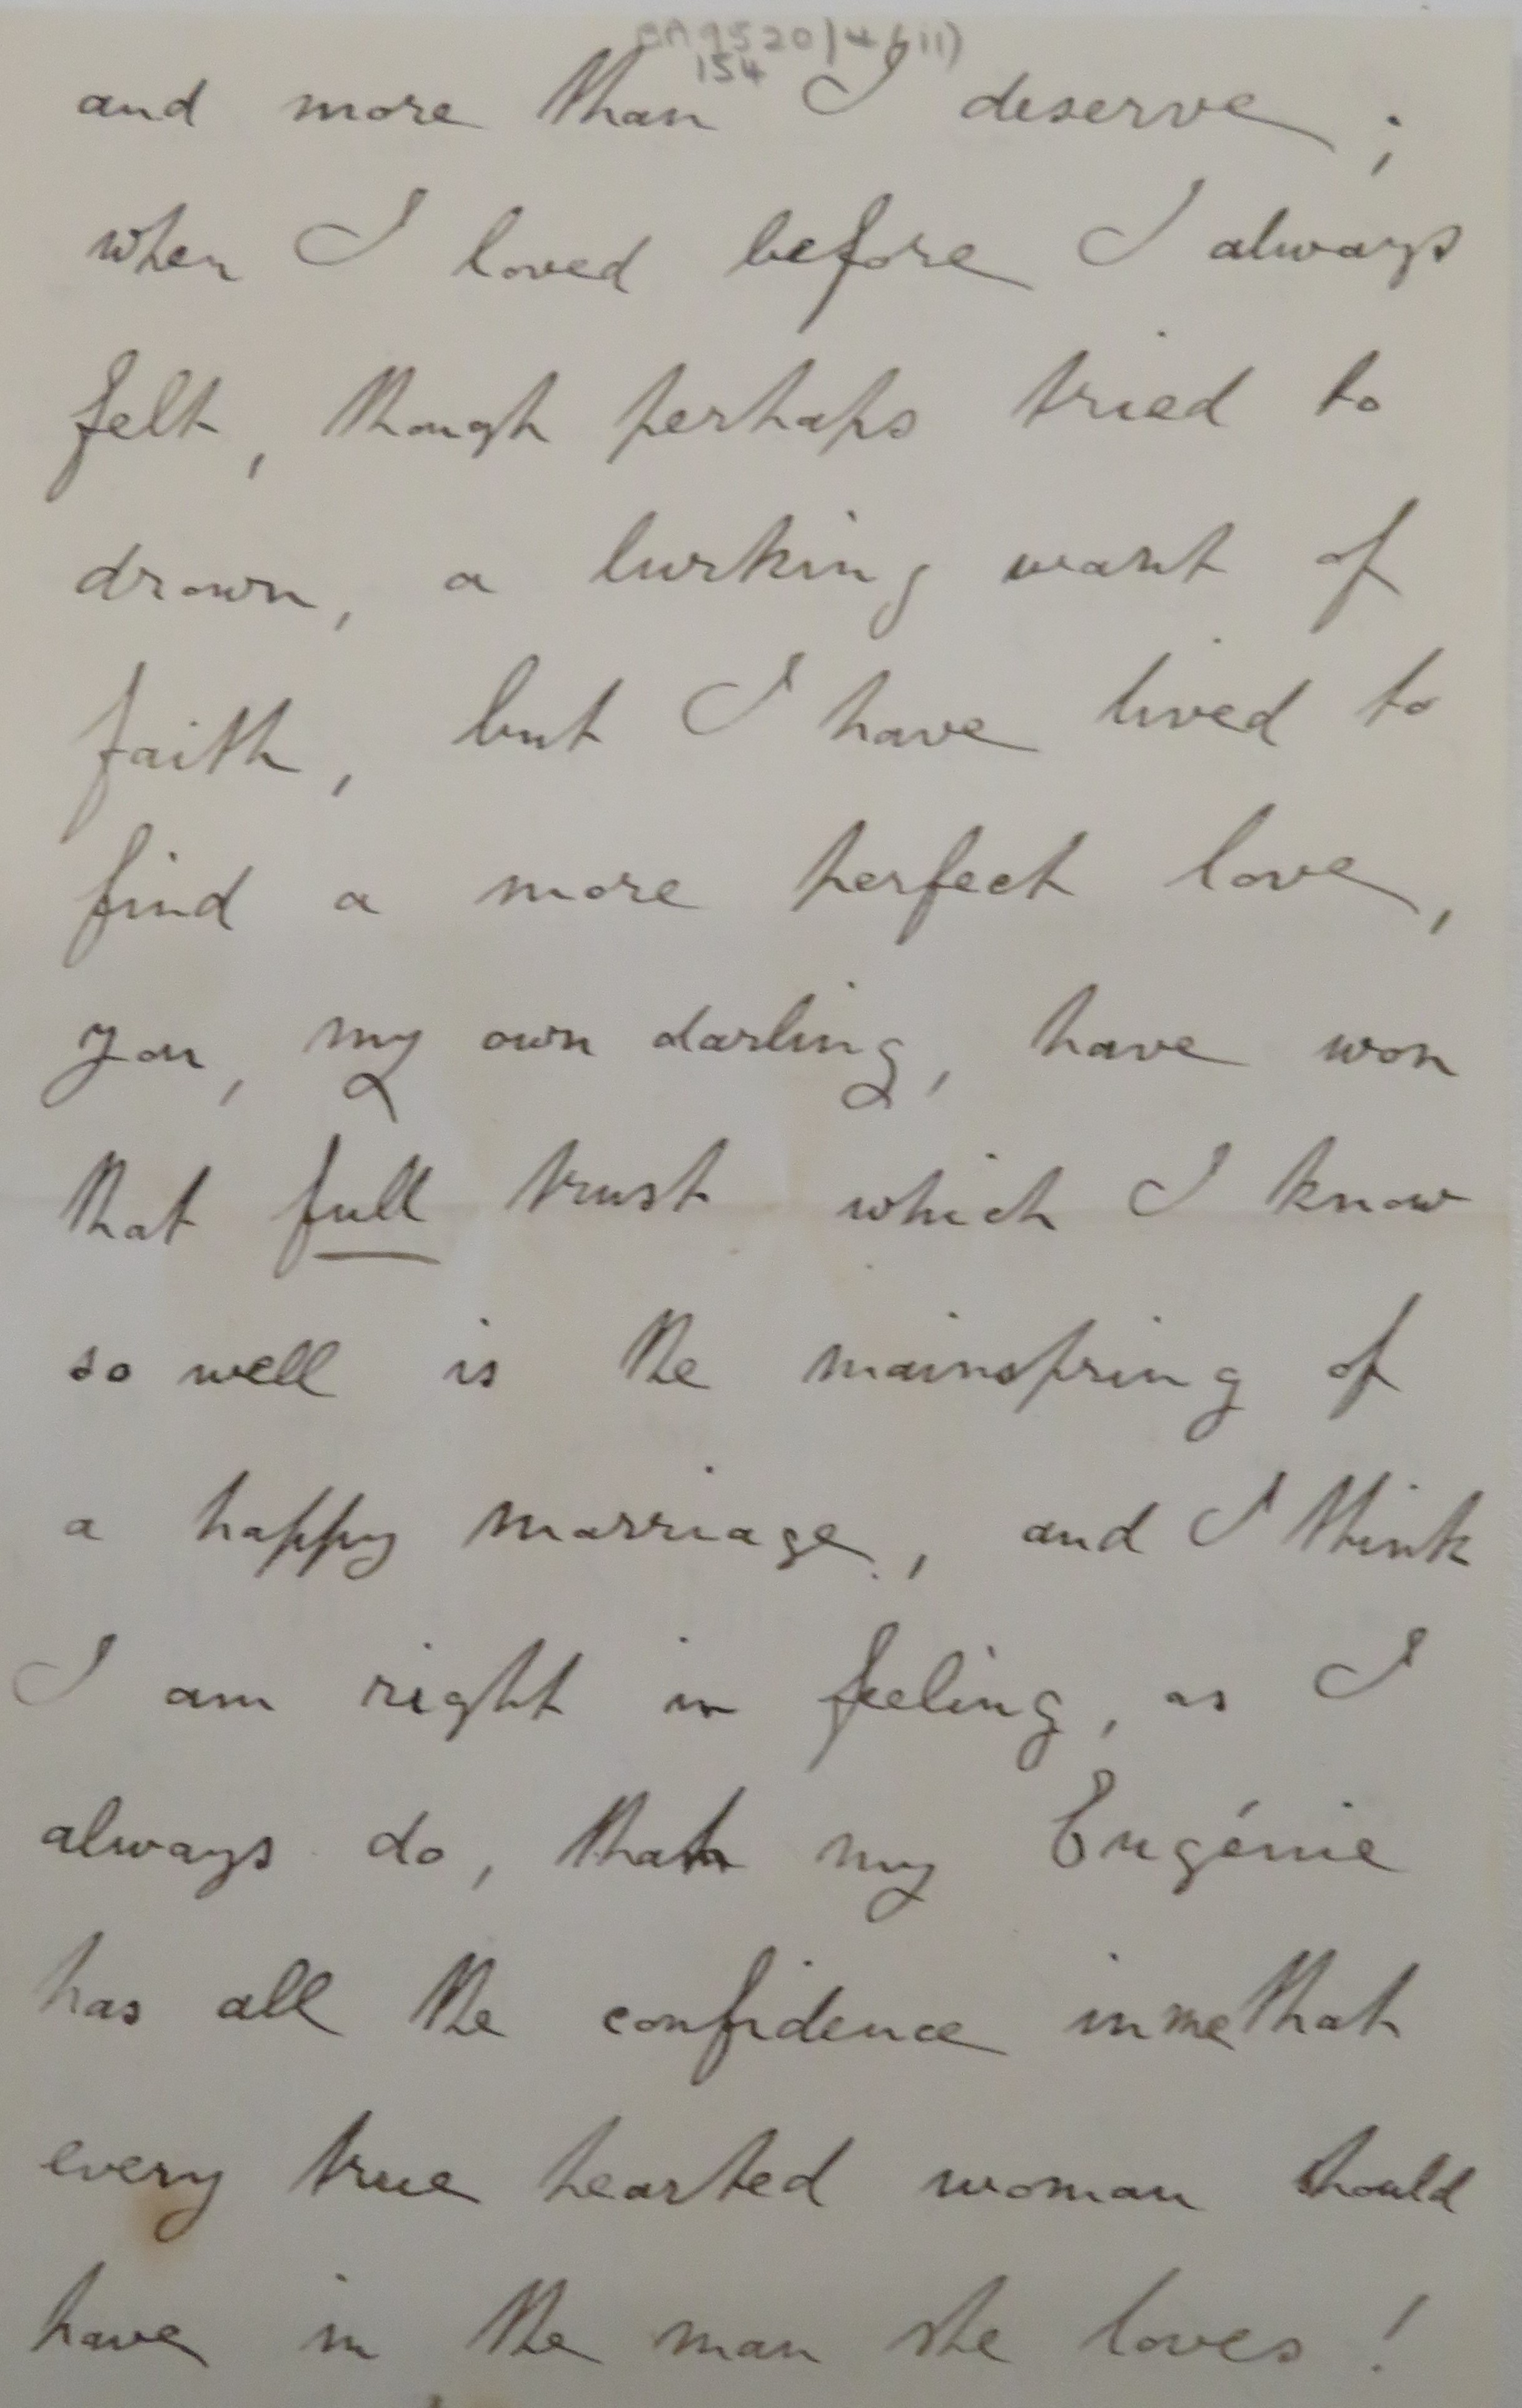 154
and more than I deserve ;
when I loved before I always
felt, though perhaps tried to
drown, a lurking want of
faith, but I have lived to
find a more perfect love,
you, my own darling, have won
that full trust which I know
so well is the mainspring of
a happy marriage, and I think
I am right in feeling, as I
always do, that my Eugénie
has all the confidence in me that
every true hearted woman should
have in the man she loves !